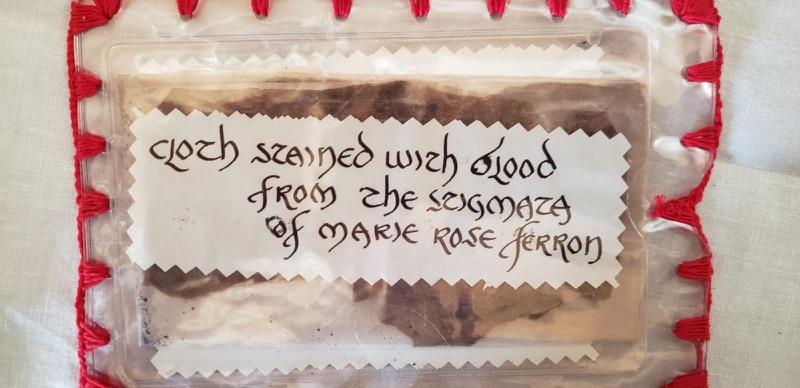 cloth stained with blood
from the stigmata
of Marie Rose Ferron